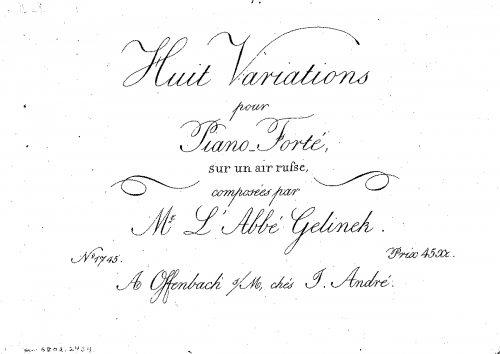 Huit Variations
pour
Piano-Forté,
sur un air ruſse,
composées par
Mr. L'Abbé Gelinek.
No. 1745.
Prix 45 Xr.
A Offenbach s/M, chés J. André.
m. 6802.2434